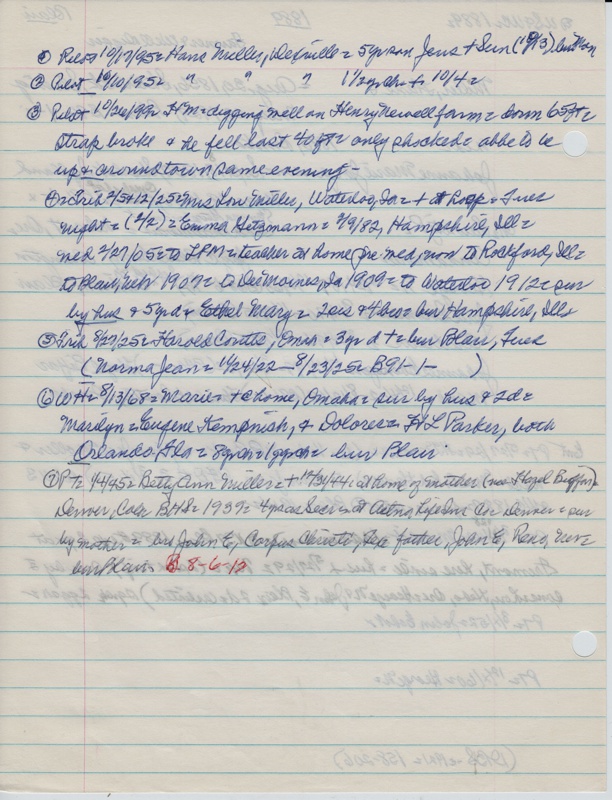 ① Pilot 10/17/95 = Hans Miller, = 5 yr son Jens + Sun (10/13) bur
② Pilot 10/10/95 = " " " 1 1/2 yr ch + 10/4 =
③ Pilot 10/26/99 = HM = digging well on Henry Newell farm = down 65 ft =
strap broke & he fell last 40 ft = only shocked = able to be
up & around town same evening -
2/5 + 12/25 = Mrs Lou Miller, Waterloo, Ia = + at hosp = Tues
night = (2/2) = Emma Hitzmann = 2/9/82, Hampshire, Ill =
med 2/27/05 = to LPM = teacher at home pre med, mov to Rockford, Ill =
to Blair, Neb 1907 = to Des Moines, Ia 1909 = to Waterloo 1912 = sur
by hus & 5 yr d = Ethel Mary = 2 sis & 4 bros = bur Hampshire, Ill =
⑤ Ent 8/27/25 = Harold = 3 yr d + = bur Blair, Tues
(Norma Jean = 11/24/22 — 8/23/25 = B91-1- )
⑥ WH = 8/13/68 = Marie = + @ home, Omaha = sur by hus & 2 d =
Marilyn = Eugene Kempnish, & Dolores = HL Parker, both
Orlando, Fla = 8 grch = 1 ggrch = bur Blair
⑦ PT = 1/4/45 = Betty Ann Miller = + 12/31/44 = at home of mother (nee Hazel )
Denver, Colo BHS = 1939 = 4 yrs as Secr = at Aetna Life Ins Co Denver = sur
by mother = bro John E, Corpus Christi, Tex father, John E, Reno, Nev =
bur Blair = 8-6-12